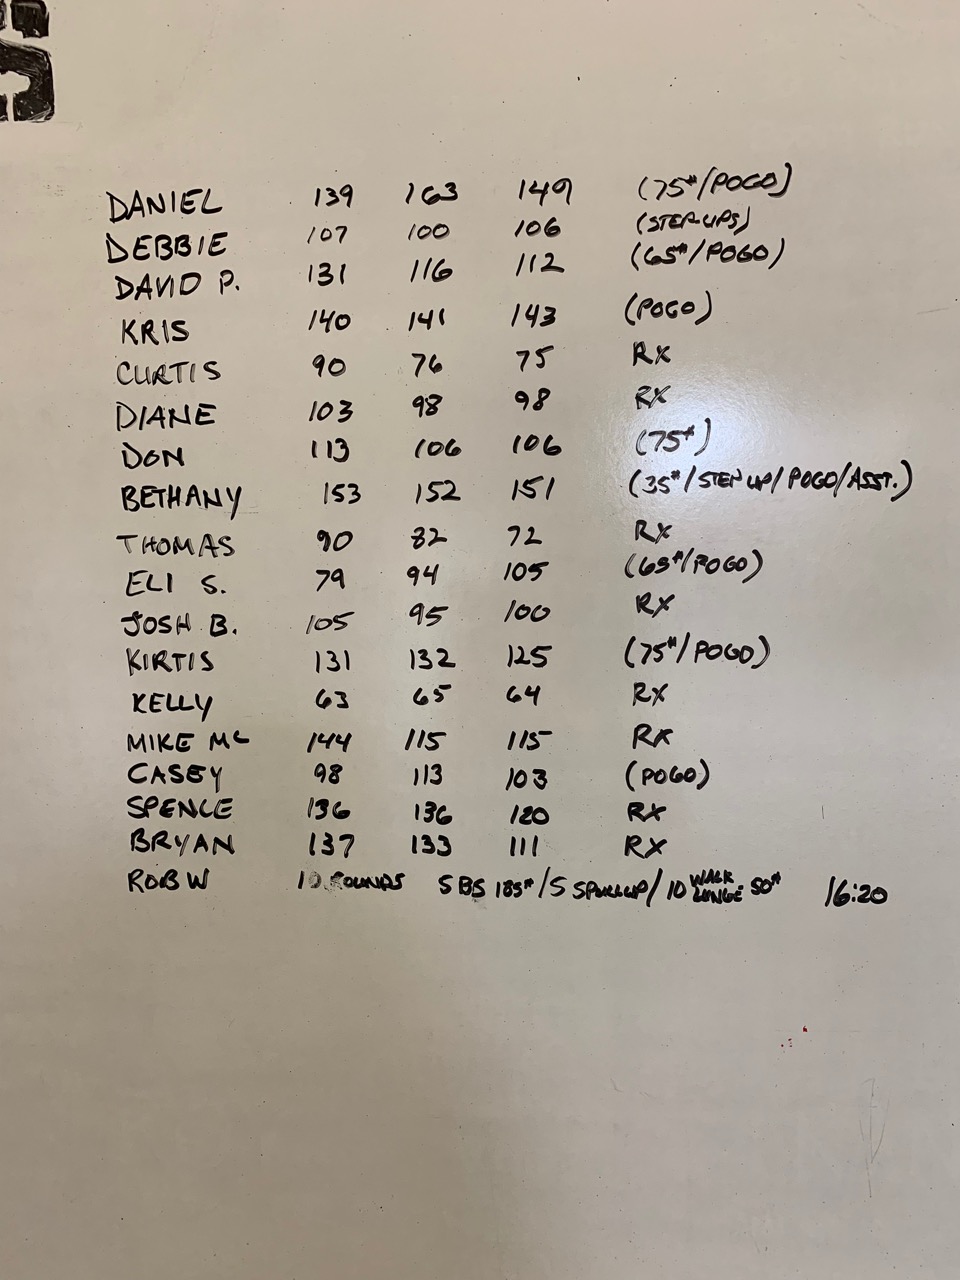 DANIEL 139 163 149 (75#/POGO)
DEBBIE 107 100 106 (STEP-UPS)
DAVID P. 131 116 112 (65#/POGO)
KRIS 140 141 143 (POGO)
CURTIS 90 76 75 RX
DIANE 103 98 98 RX
DON 113 106 106 (75#)
BETHANY 153 152 151 (35#/STEP UP/POGO/ASST.)
THOMAS 90 82 72 RX
ELI S. 79 94 105 (65#/POGO)
JOSH B. 105 95 100 RX
KIRTIS 131 132 125 (75#/POGO)
KELLY 63 65 64 RX
MIKE MC 144 115 115 RX
CASEY 98 113 103 (POGO)
SPENCE 136 136 120 RX
BRYAN 137 133 111 RX
ROB W 10 ROUNDS 5 BS 185#/5 SPULLUP/10 WALK LUNGE 50# 16:20